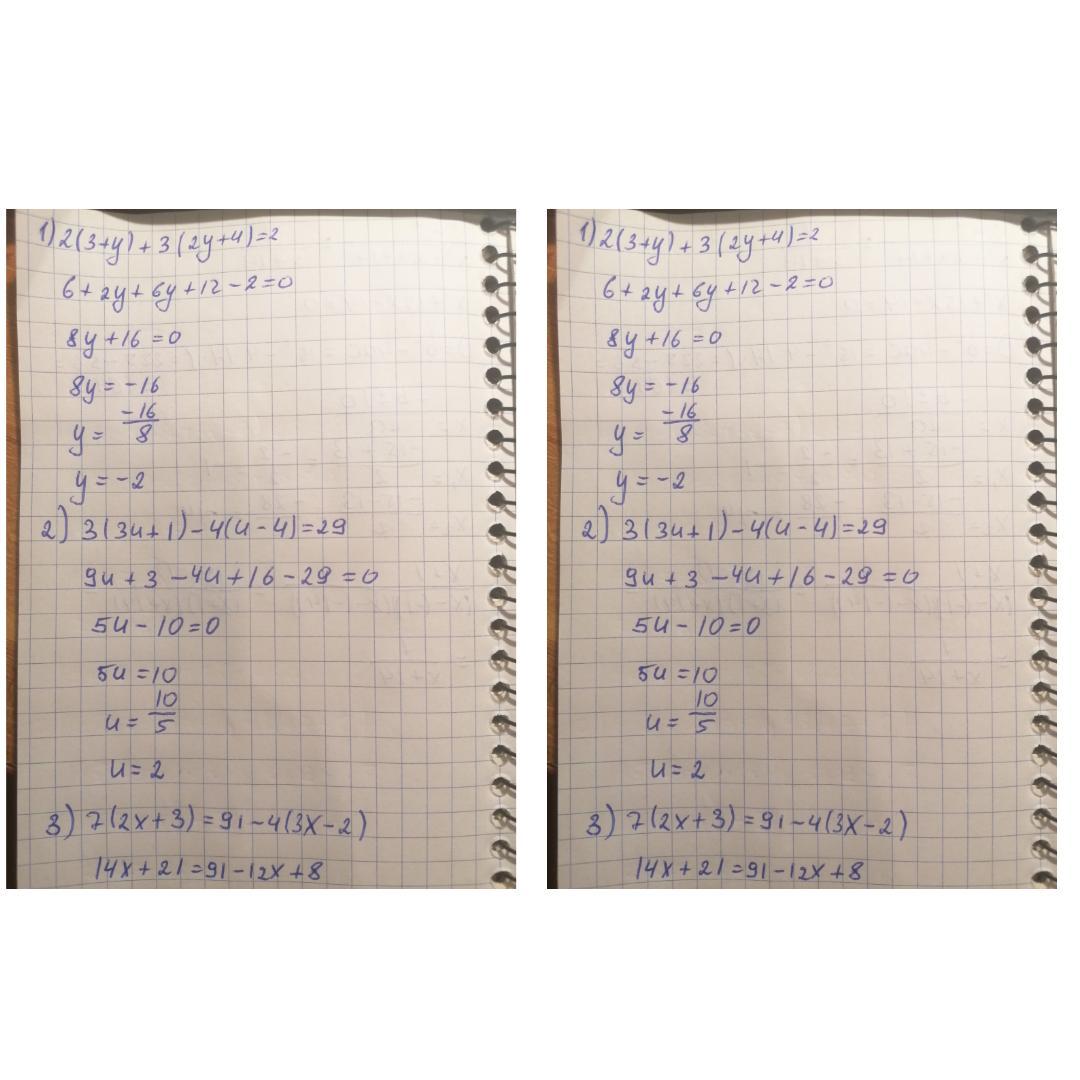 1) 2(3+y) + 3(2y+4)=2
6+2y+6y+12-2=0
8y+16=0
8y=-16
y= -16/8
y=-2
2) 3(3u+1)-4(u-4)=29
9u+3-4u+16-29=0
5u-10=0
5u=10
u= 10/5
u=2
3) 7(2x+3)=91-4(3x-2)
14x+21=91-12x+8
1) 2(3+y) + 3(2y+4)=2
6+2y+6y+12-2=0
8y+16=0
8y=-16
y= -16/8
y=-2
2) 3(3u+1)-4(u-4)=29
9u+3-4u+16-29=0
5u-10=0
5u=10
u= 10/5
u=2
3) 7(2x+3)=91-4(3x-2)
14x+21=91-12x+8